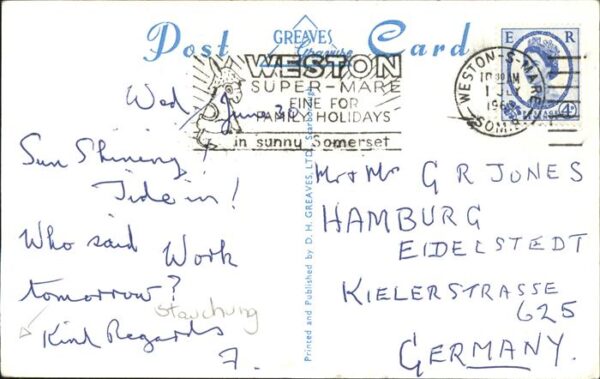 Post Card
GREAVES
WESTON
SUPER-MARE
FINE FOR
FAMILY HOLIDAYS
in sunny Somerset
WESTON-S-MARE
SOM.
E R
Wed June 30
Sun Shining
Tide in!
Who said Work
tomorrow?
Kind Regards
F.
stauchung
Printed and Published by D. H. GREAVES, LTD., Scarborough
Mr & Mrs G R JONES
HAMBURG
EIDELSTEDT
KIELERSTRASSE
625
GERMANY.